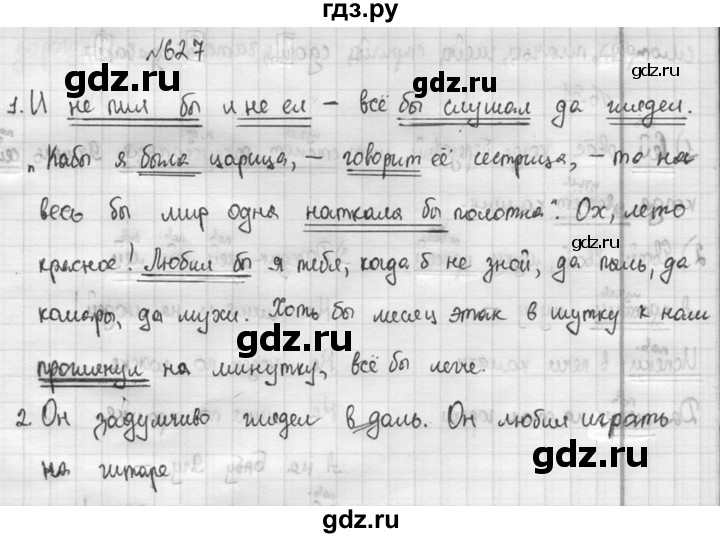 гдз.ру
№627
gdz.ru
gdz.ru
1. И не пил бы и не ел – всё бы слушал да глядел.
gdz.ru
„Кабы я была царица, – говорит её сестрица, – то на
весь бы мир одна наткала бы полотна“. Ох, лето
gdz.ru
красное! Любил бы я тебя, когда б не зной, да пыль, да
комары, да мухи. Хоть бы месяц этак в шутку к нам
gdz.ru
проглянул на минутку, всё бы легче.
gdz.ru
2. Он задумчиво глядел вдаль. Он любил играть
на гитаре
gdz.ru
gdz.ru